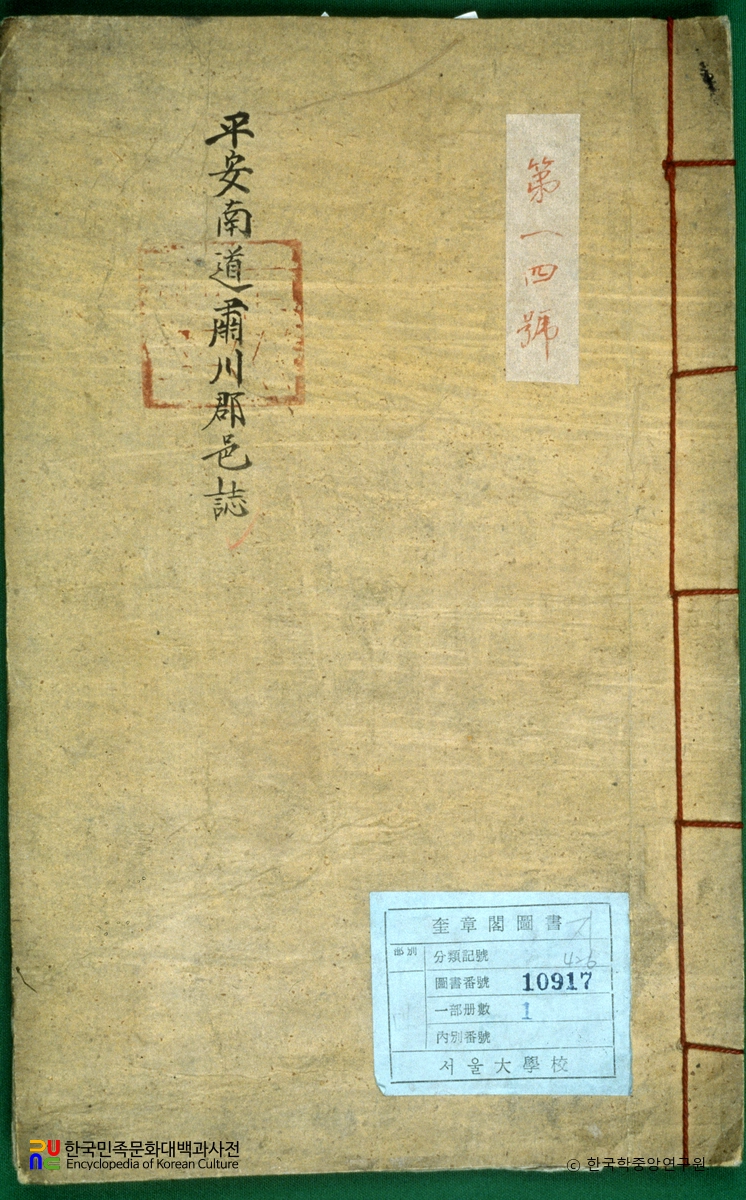 第一四號
平安南道肅川郡邑誌
奎章閣圖書
部別
分類記號
圖書番號 10917
一部册數 1
內別番號
서울大學校
한국민족문화대백과사전
Encyclopedia of Korean Culture
© 한국학중앙연구원